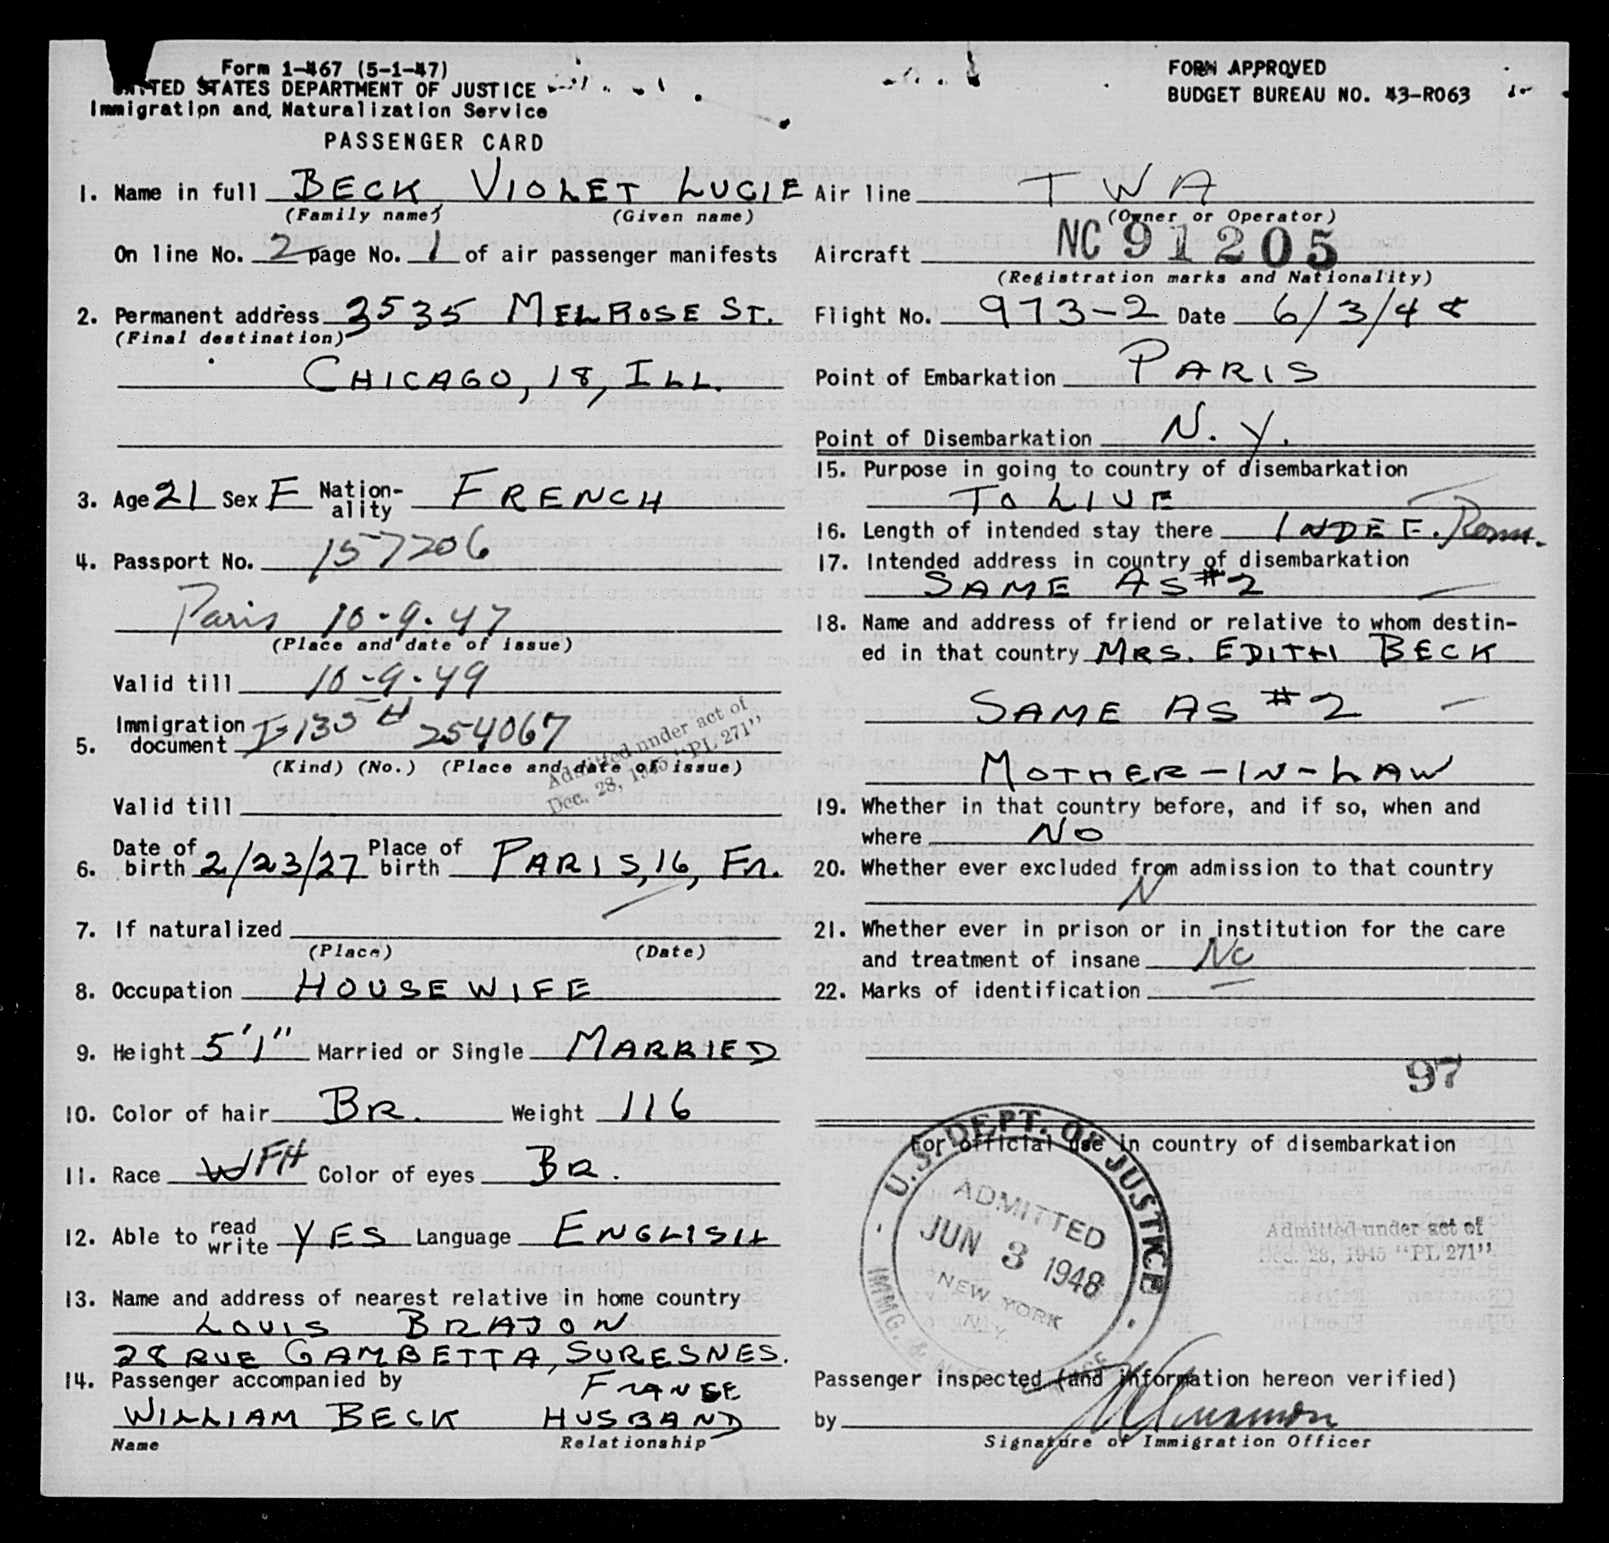 Form 1-467 (5-1-47)
UNITED STATES DEPARTMENT OF JUSTICE
Immigration and Naturalization Service
PASSENGER CARD
FORM APPROVED
BUDGET BUREAU NO. 43-R063
1. Name in full BECK, VIOLET LUCIE
(Family name) (Given name)
On line No. 2 page No. 1 of air passenger manifests
2. Permanent address 3535 MELROSE ST.
(Final destination)
CHICAGO, 18, ILL.
3. Age 21 Sex F Nation-ality FRENCH
4. Passport No. 157206
Paris 10-9-47
(Place and date of issue)
Valid till 10-9-49
5. Immigration document I-133 H 254067
(Kind) (No.) (Place and date of issue)
Admitted under act of
Dec. 28, 1945 "PL 271"
Valid till
6. Date of birth 2/23/27 Place of birth PARIS, 16, FR.
7. If naturalized
(Place) (Date)
8. Occupation HOUSEWIFE
9. Height 5'1" Married or Single MARRIED
10. Color of hair BR. Weight 116
11. Race W FH Color of eyes BR.
12. Able to read write YES Language ENGLISH
13. Name and address of nearest relative in home country
LOUIS BRAJON
28 RUE GAMBETTA, SURESNES.
FRANCE
14. Passenger accompanied by
WILLIAM BECK HUSBAND
Name Relationship
Air line TWA
(Owner or Operator)
Aircraft NC 91205
(Registration marks and Nationality)
Flight No. 973-2 Date 6/3/48
Point of Embarkation PARIS
Point of Disembarkation N.Y.
15. Purpose in going to country of disembarkation
TO LIVE
16. Length of intended stay there INDEF. Perm.
17. Intended address in country of disembarkation
SAME AS #2
18. Name and address of friend or relative to whom destin-
ed in that country MRS. EDITH BECK
SAME AS #2
MOTHER-IN-LAW
19. Whether in that country before, and if so, when and
where NO
20. Whether ever excluded from admission to that country
N
21. Whether ever in prison or in institution for the care
and treatment of insane No
22. Marks of identification
97
For official use in country of disembarkation
U.S. DEPT. OF JUSTICE
ADMITTED
JUN 3 1948
NEW YORK
N.Y.
IMMG. &
Admitted under act of
Dec. 28, 1945 "PL 271"
Passenger inspected (and information hereon verified)
by
Signature of Immigration Officer